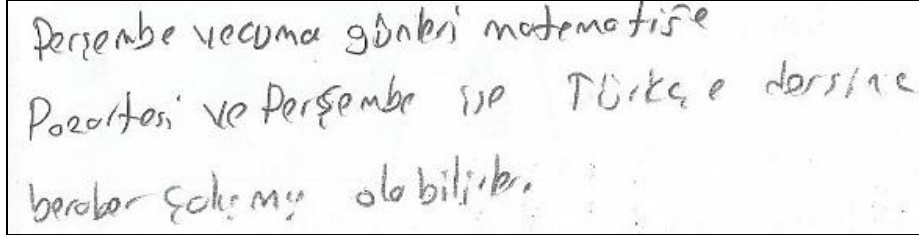 Perşembe ve cuma günleri matematiğe
Pazartesi ve Perşembe ise Türkçe dersine
beraber çalışmış olabilirler.